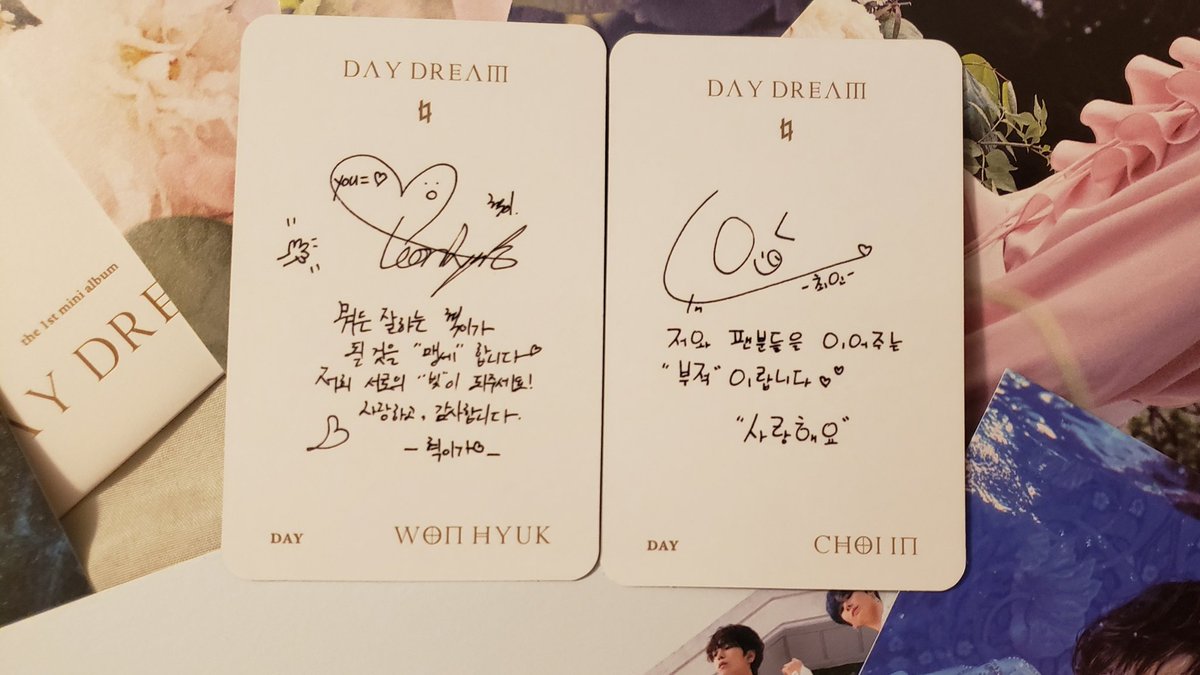 the 1st mini album
Y DRE
DAY DREAM
you=♡
혁이.
Wonhyuk
뭐든 잘하는 혁이가
될 것을 "맹세" 합니다♡
저희 서로의 "빛"이 되주세요!
사랑하고, 감사합니다.
-혁이가♡-
DAY
WON HYUK
DAY DREAM
In
-최인-
저와 팬분들을 이어주는
"부적"이랍니다♡♡
"사랑해요"
DAY
CHOI IN